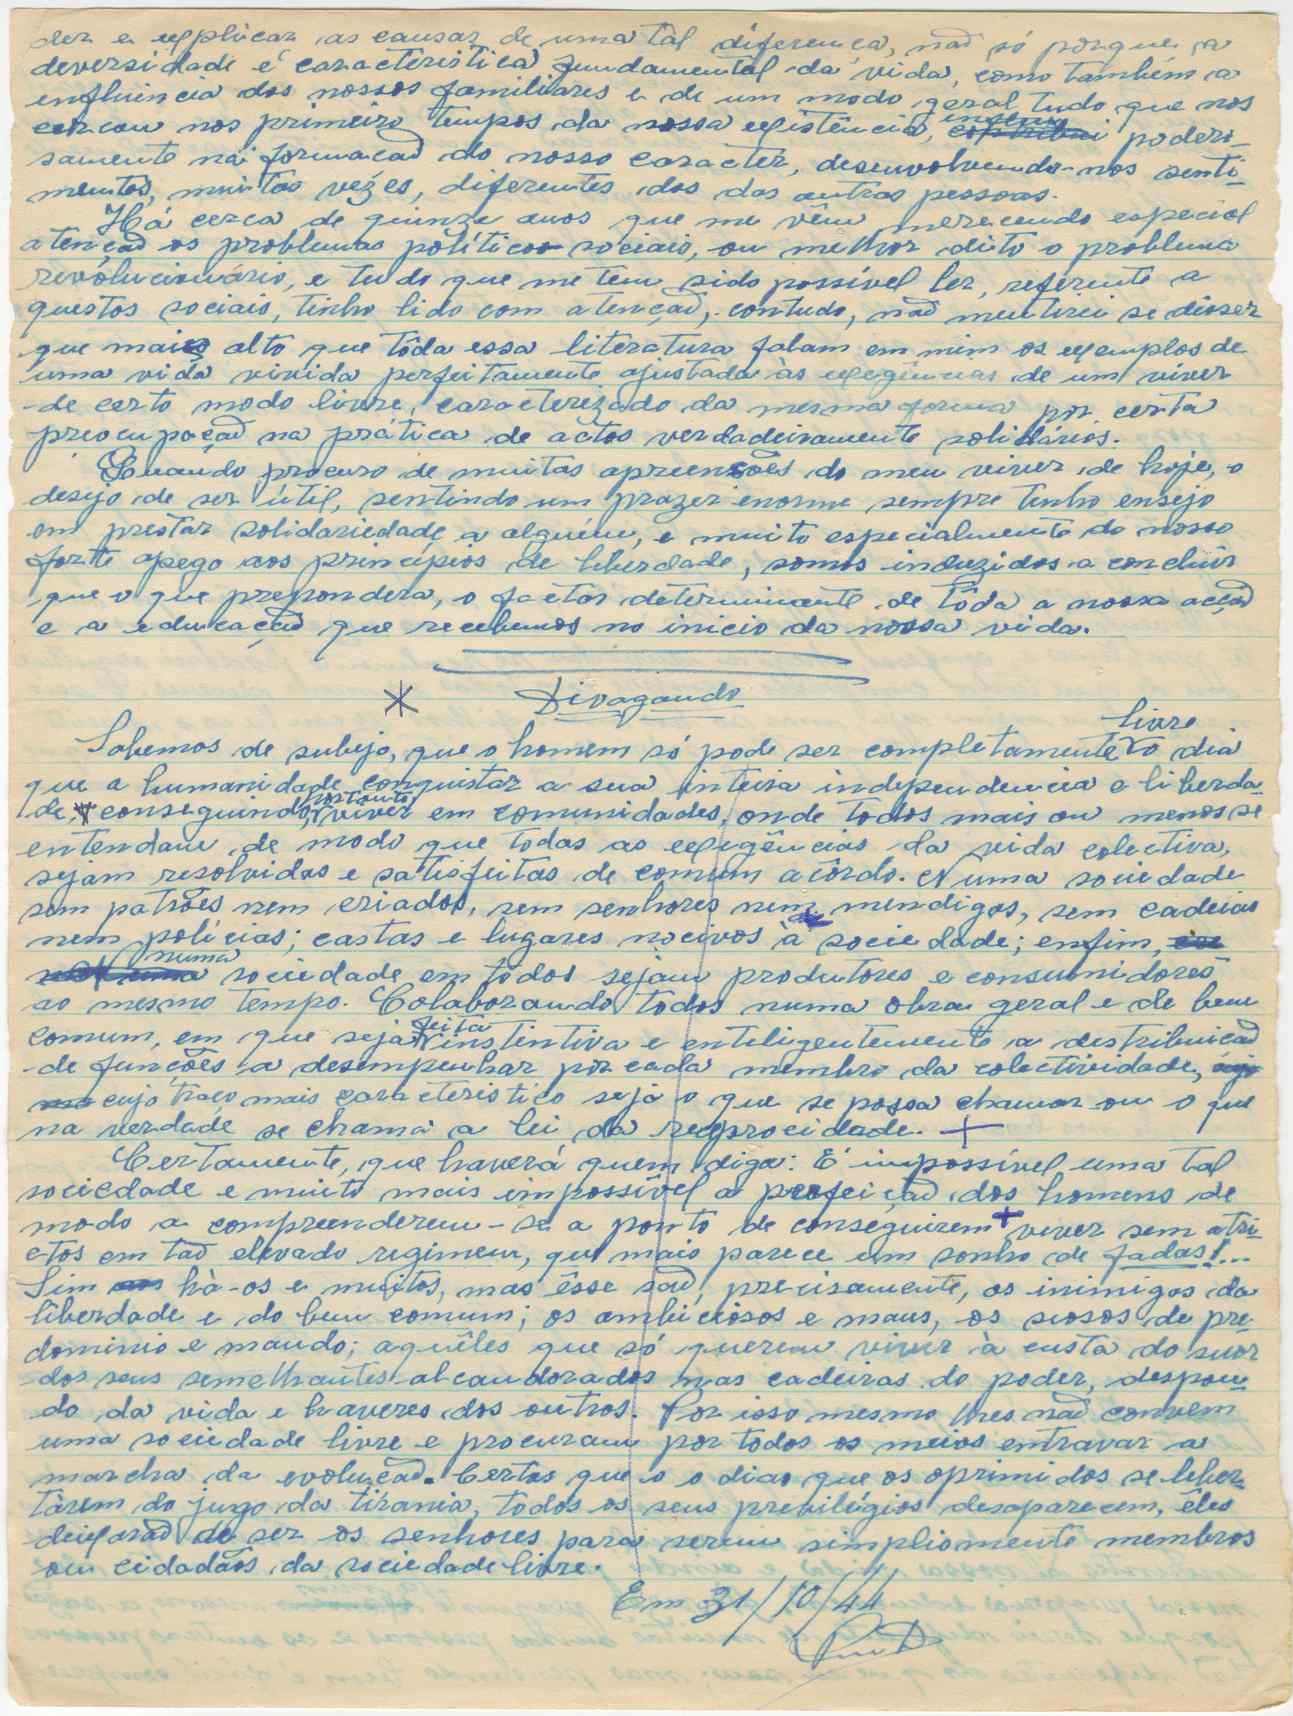 der e explicar as causas de uma tal diferença, não só porque a
deversidade é caracteristica fundamental da vida, como também a
enfluencia dos nossos familiares e de um modo geral tudo que nos
cercou nos primeiro tempos da nossa existência, influiu podero-
samente na formação do nosso caracter, desenvolvendo-nos senti-
mentos, muitas vezes, diferentes dos das outras pessoas.
Há cerca de quinze anos que me vêm merecendo especial
atenção os problemas políticos-sociais, ou melhor dito o problema
revolucionário, e tudo que me tem sido possível ler, referente a
questos sociais, tenho lido com atenção, contudo, não mentirei se disser
que mais alto que tôda essa literatura falam em mim os exemplos de
uma vida vivida perfeitamente ajustada às exegências de um viver
de certo modo livre, caracterizado da mesma forma por certa
preocupação na prática de actos verdadeiramente solidários.
Quando procuro de muitas apreensões do meu viver de hoje, o
desejo de ser útil, sentindo um prazer enorme sempre tenho ensejo
em prestar solidariedade a alguém, e muito especialmente do nosso
forte apego aos principios de liberdade, somos induzidos a concluir
que o que prepondera, o factor determinante de tôda a nossa acção
e a educação que recebemos no inicio da nossa vida.
Divagando
livre
Sabemos de subejo, que o homem só pode ser completamente no dia
que a humanidade conquistar a sua inteira independencia e liberda-
de, conseguindo, portanto viver em comunidades, onde todos mais ou menos se
entendam de modo que todas as exegências da vida colectiva,
sejam resolvidas e satisfeitas de comum acôrdo. Numa sociedade
sem patrões nem criados, sem senhores nem mendigos, sem cadeias
nem polícias; castas e lugares nocivos à sociedade; enfim,
numa sociedade em todos sejam produtores e consumidores
ao mesmo tempo. Colaborando todos numa obra geral e de bem
comum, em que seja feita instentiva e enteligentemente a destribuição
de funções a desempenhar por cada membro da colectividade,
cujo traço mais caracteristico seja o que se possa chamar ou o que
na verdade se chama a lei da reciprocidade. +
Certamente, que haverá quem diga: É impossível uma tal
sociedade e muito mais impossível a perfeição dos homens de
modo a compreenderem-se a ponto de conseguirem + viver sem atri-
ctos em tão elevado regimem, que mais parece um sonho de fadas!...
Sim há-os e muitos, mas êsse são, precisamente, os inimigos da
liberdade e do bem comum; os ambiciosos e maus, os siosos de pre-
dominio e mando; aquêles que só querem viver à custa do suor
dos seus semelhantes alcandorados nas cadeiras do poder, despon-
do da vida e haveres dos outros. Por isso mesmo lhes não convem
uma sociedade livre e procuram por todos os meios entravar a
marcha da evolução. Certos que o o dias que os oprimidos se liber-
tarem do jugo da tirania, todos os seus previlégios desaparecem, êles
deixarão de ser os senhores para serem simpliomente membros
ou cidadãos da sociedade livre.
Em 31/10/44